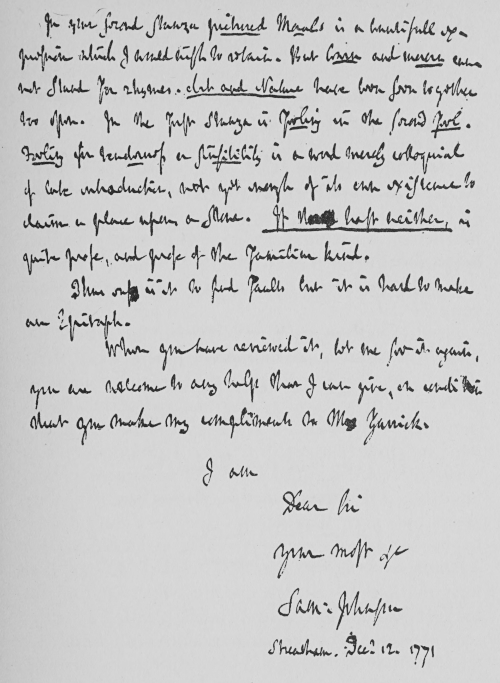 In your second Stanza pictured Morals is a beautifull ex-
pression which I would wish to retain. But learn and mourn can
not stand for rhymes. Art and Nature have been seen together
too often. In the first Stanza is feeling in the second feel.
Feeling for tenderness or sensibility is a word merely colloquial
of late introduction, not yet enough of its own existence to
claim a place upon a Stone. If thou hast neither, is
quite prose, and prose of the familiar kind.
Thus easy is it to find Faults but it is hard to make
an Epitaph.
When you have reviewed it, let me see it again,
you are welcome to any help that I can give, on condition
that you make my compliments to Mrs Garrick.
I am
Dear Sir
your most &c
Sam: Johnson
Streatham. Dec: 12. 1771